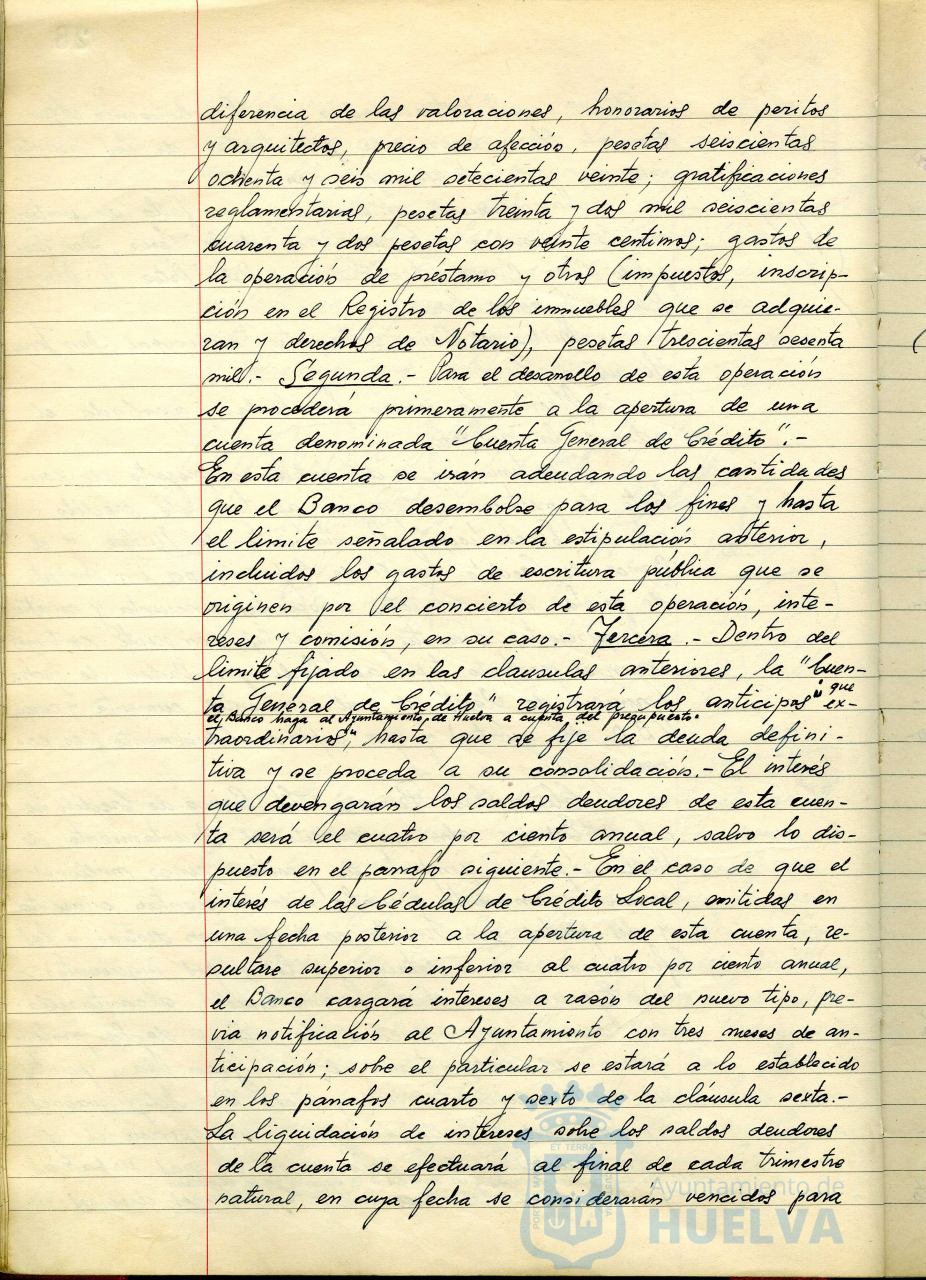 diferencia de las valoraciones, honorarios de peritos
y arquitectos, precio de afección, pesetas seiscientas
ochenta y seis mil setecientas veinte; gratificaciones
reglamentarias, pesetas treinta y dos mil seiscientas
cuarenta y dos pesetas con veinte centimos; gastos de
la operación de préstamo y otros (impuestos, inscrip-
ción en el Registro de los inmuebles que se adquie-
ran y derechos de Notario), pesetas trescientas sesenta
mil.- Segunda.- Para el desarrollo de esta operación
se procederá primeramente a la apertura de una
cuenta denominada "Cuenta General de Crédito".-
En esta cuenta se irán adeudando las cantidades
que el Banco desembolse para los fines y hasta
el limite señalado en la estipulación anterior,
incluidos los gastos de escritura pública que se
originen por el concierto de esta operación, inte-
reses y comisión, en su caso.- Tercera.- Dentro del
limite fijado en las clausulas anteriores, la "Cuen-
ta General de Crédito" registrará los anticipos " que ex-
el Banco haga al Ayuntamiento de Huelva a cuenta del presupuesto
traordinario", hasta que se fije la deuda defini-
tiva y se proceda a su consolidación.- El interés
que devengarán los saldos deudores de esta cuen-
ta será el cuatro por ciento anual, salvo lo dis-
puesto en el parrafo siguiente.- En el caso de que el
interés de las Cédulas de Crédito Local, emitidas en
una fecha posterior a la apertura de esta cuenta, re-
sultare superior o inferior al cuatro por ciento anual,
el Banco cargará intereses a razón del nuevo tipo, pre-
via notificación al Ayuntamiento con tres meses de an-
ticipación; sobre el particular se estará a lo establecido
en los párrafos cuarto y sexto de la cláusula sexta.-
La liquidación de intereses sobre los saldos deudores
de la cuenta se efectuará al final de cada trimestre
natural, en cuya fecha se considerarán vencidos para
Ayuntamiento de
HUELVA